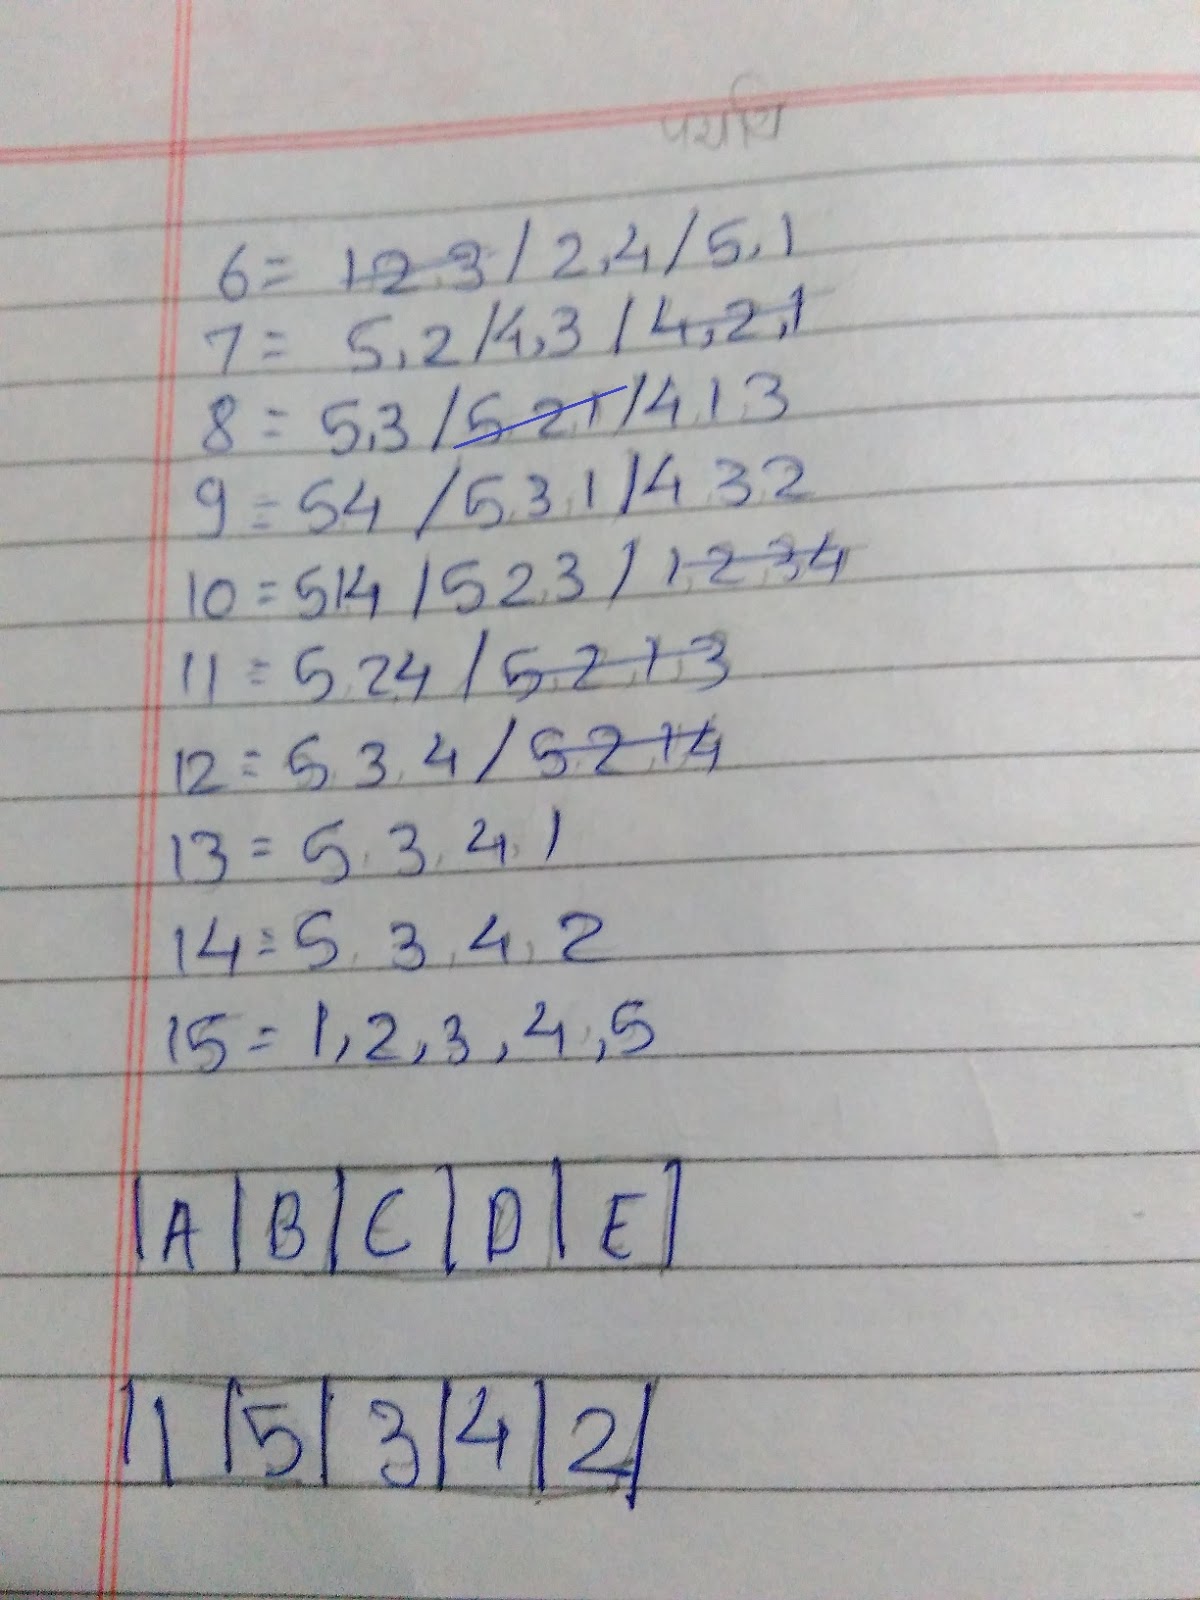 6 = 1 2 3 / 2,4 / 5,1
7 = 5,2 / 4,3 / 4,2,1
8 = 5,3 / 5 2 1 / 4 1 3
9 = 5 4 / 5 3 1 / 4 3 2
10 = 5 1 4 / 5 2 3 / 1 2 3 4
11 = 5 2 4 / 5 2 1 3
12 = 5 3 4 / 5 2 1 4
13 = 5 3 4 1
14 = 5 3 4 2
15 = 1,2,3,4,5
| A | B | C | D | E |
| 1 | 5 | 3 | 4 | 2 |